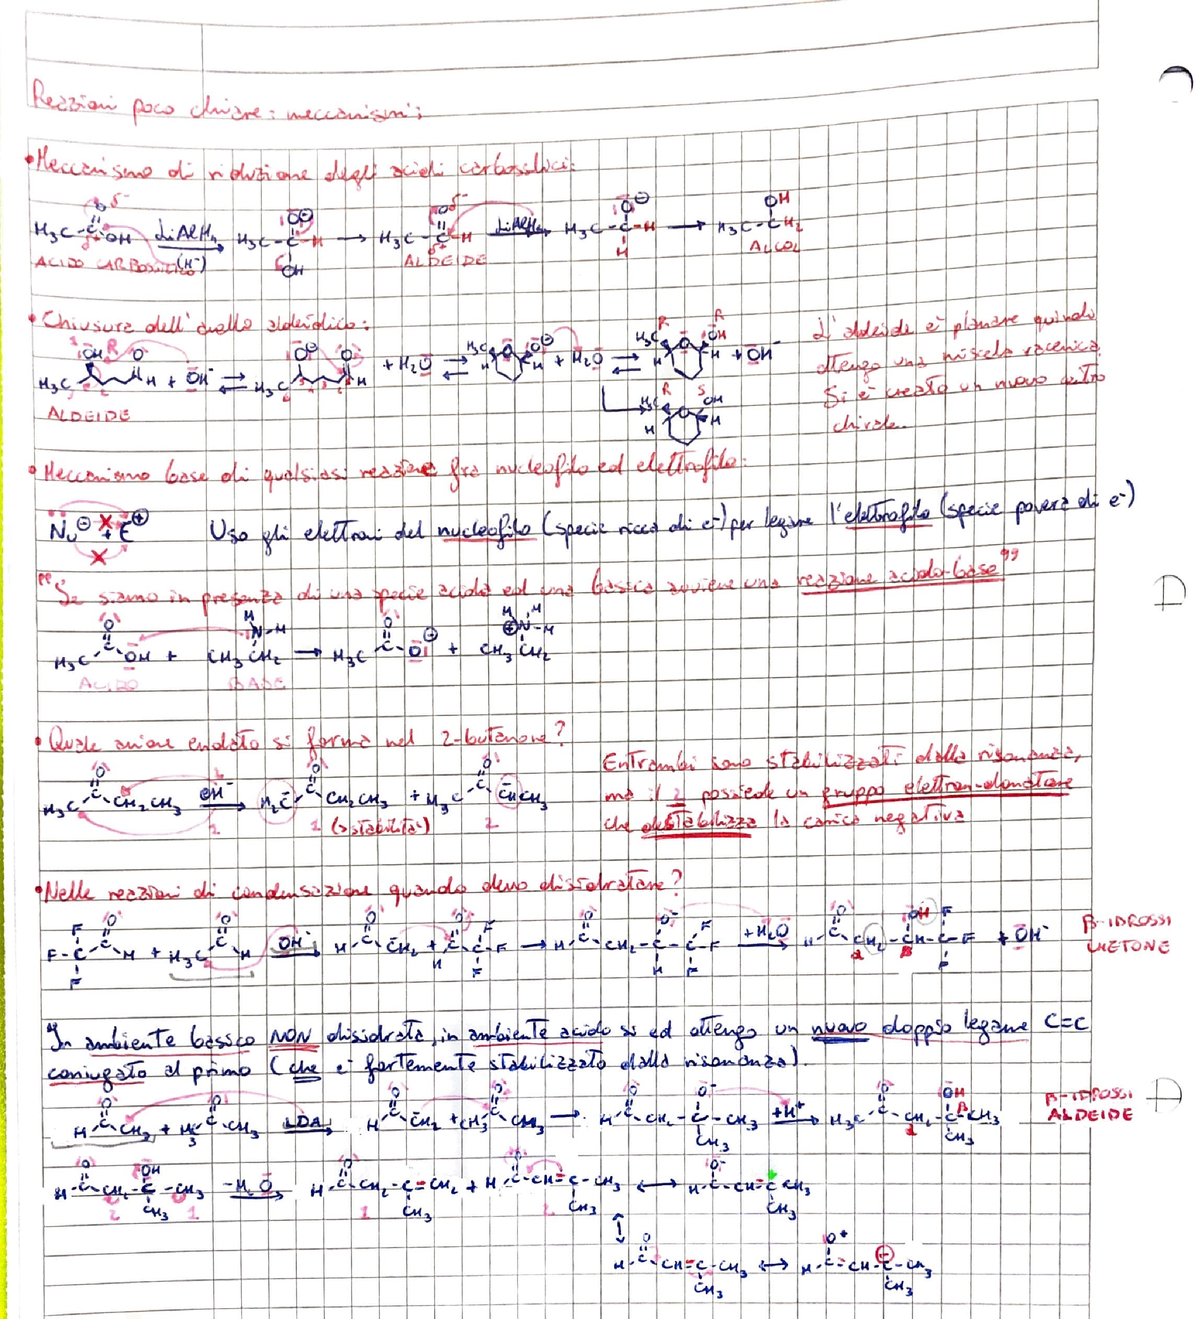 Reazioni poco chiare: meccanismi:
• Meccanismo di riduzione degli acidi carbossilici:
H₃C-C OH LiAlH₄ (H⁻) H₃C-C-H OH → H₃C-C-H LiAlH₄ H₃C-C-H H → H₃C-CH₂ OH
ACIDO CARBOSSILICO ALDEIDE ALCOL
• Chiusura dell'anello aldeidico:
H₃C OH R O H + OH⁻ ⇌ H₃C O⁻ O H + H₂O ⇌ H₃C H O O⁻ H + H₂O ⇌ H₃C R H O R OH H + OH⁻
ALDEIDE
H₃C R H O S OH H
L'aldeide è planare quindi
ottengo una miscela racemica.
Si è creato un nuovo centro
chirale.
• Meccanismo base di qualsiasi reazione fra nucleofilo ed elettrofilo:
Nu⊖ + E⊕ Uso gli elettroni del nucleofilo (specie ricca di e⁻) per legare l'elettrofilo (specie povera di e⁻)
"Se siamo in presenza di una specie acida ed una basica avviene una reazione acido-base"
H₃C-C-OH + CH₃CH₂ N-H H → H₃C-C-O⊖ + CH₃CH₂ ⊕N-H H H
ACIDO BASE
• Quale anione enolato si forma nel 2-butanone?
H₃C-C-CH₂CH₃ OH⁻ H₂C⁻-C-CH₂CH₃ + H₃C-C-C̄HCH₃
1 (>stabilità) 2
Entrambi sono stabilizzati dalla risonanza,
ma il 2 possiede un gruppo elettron-donatore
che destabilizza la carica negativa
• Nelle reazioni di condensazione quando devo disidratare?
F-C-C-H F F + H₃C-C-H OH⁻ H-C-C̄H₂ + C-C-F H F F → H-C-CH₂-C-C-F O⁻ H F F +H₂O H-C-CH₂-CH-C-F OH F F α β + OH⁻
β-IDROSSI
CHETONE
In ambiente basico NON disidrata, in ambiente acido sì ed ottengo un nuovo doppio legame C=C
coniugato al primo (che è fortemente stabilizzato dalla risonanza).
H-C-CH₃ + H₃C-C-CH₃ LDA H-C-C̄H₂ + CH₃-C-CH₃ → H-C-CH₂-C-CH₃ O⁻ CH₃ +H⁺ H₃C-C-CH₂-C-CH₃ OH CH₃ α β
β-IDROSSI
ALDEIDE
H-C-CH₂-C-CH₃ OH CH₃ 2 1 -H₂O H-C-CH₂-C=CH₂ CH₃ 1 + H-C-CH=C-CH₃ CH₃ 2 ↔ H-C-CH=C-CH₃ O⁻ CH₃
H-C-CH=C-CH₃ CH₃ ↔ H-C=CH-C-CH₃ O⁺ ⊖ CH₃